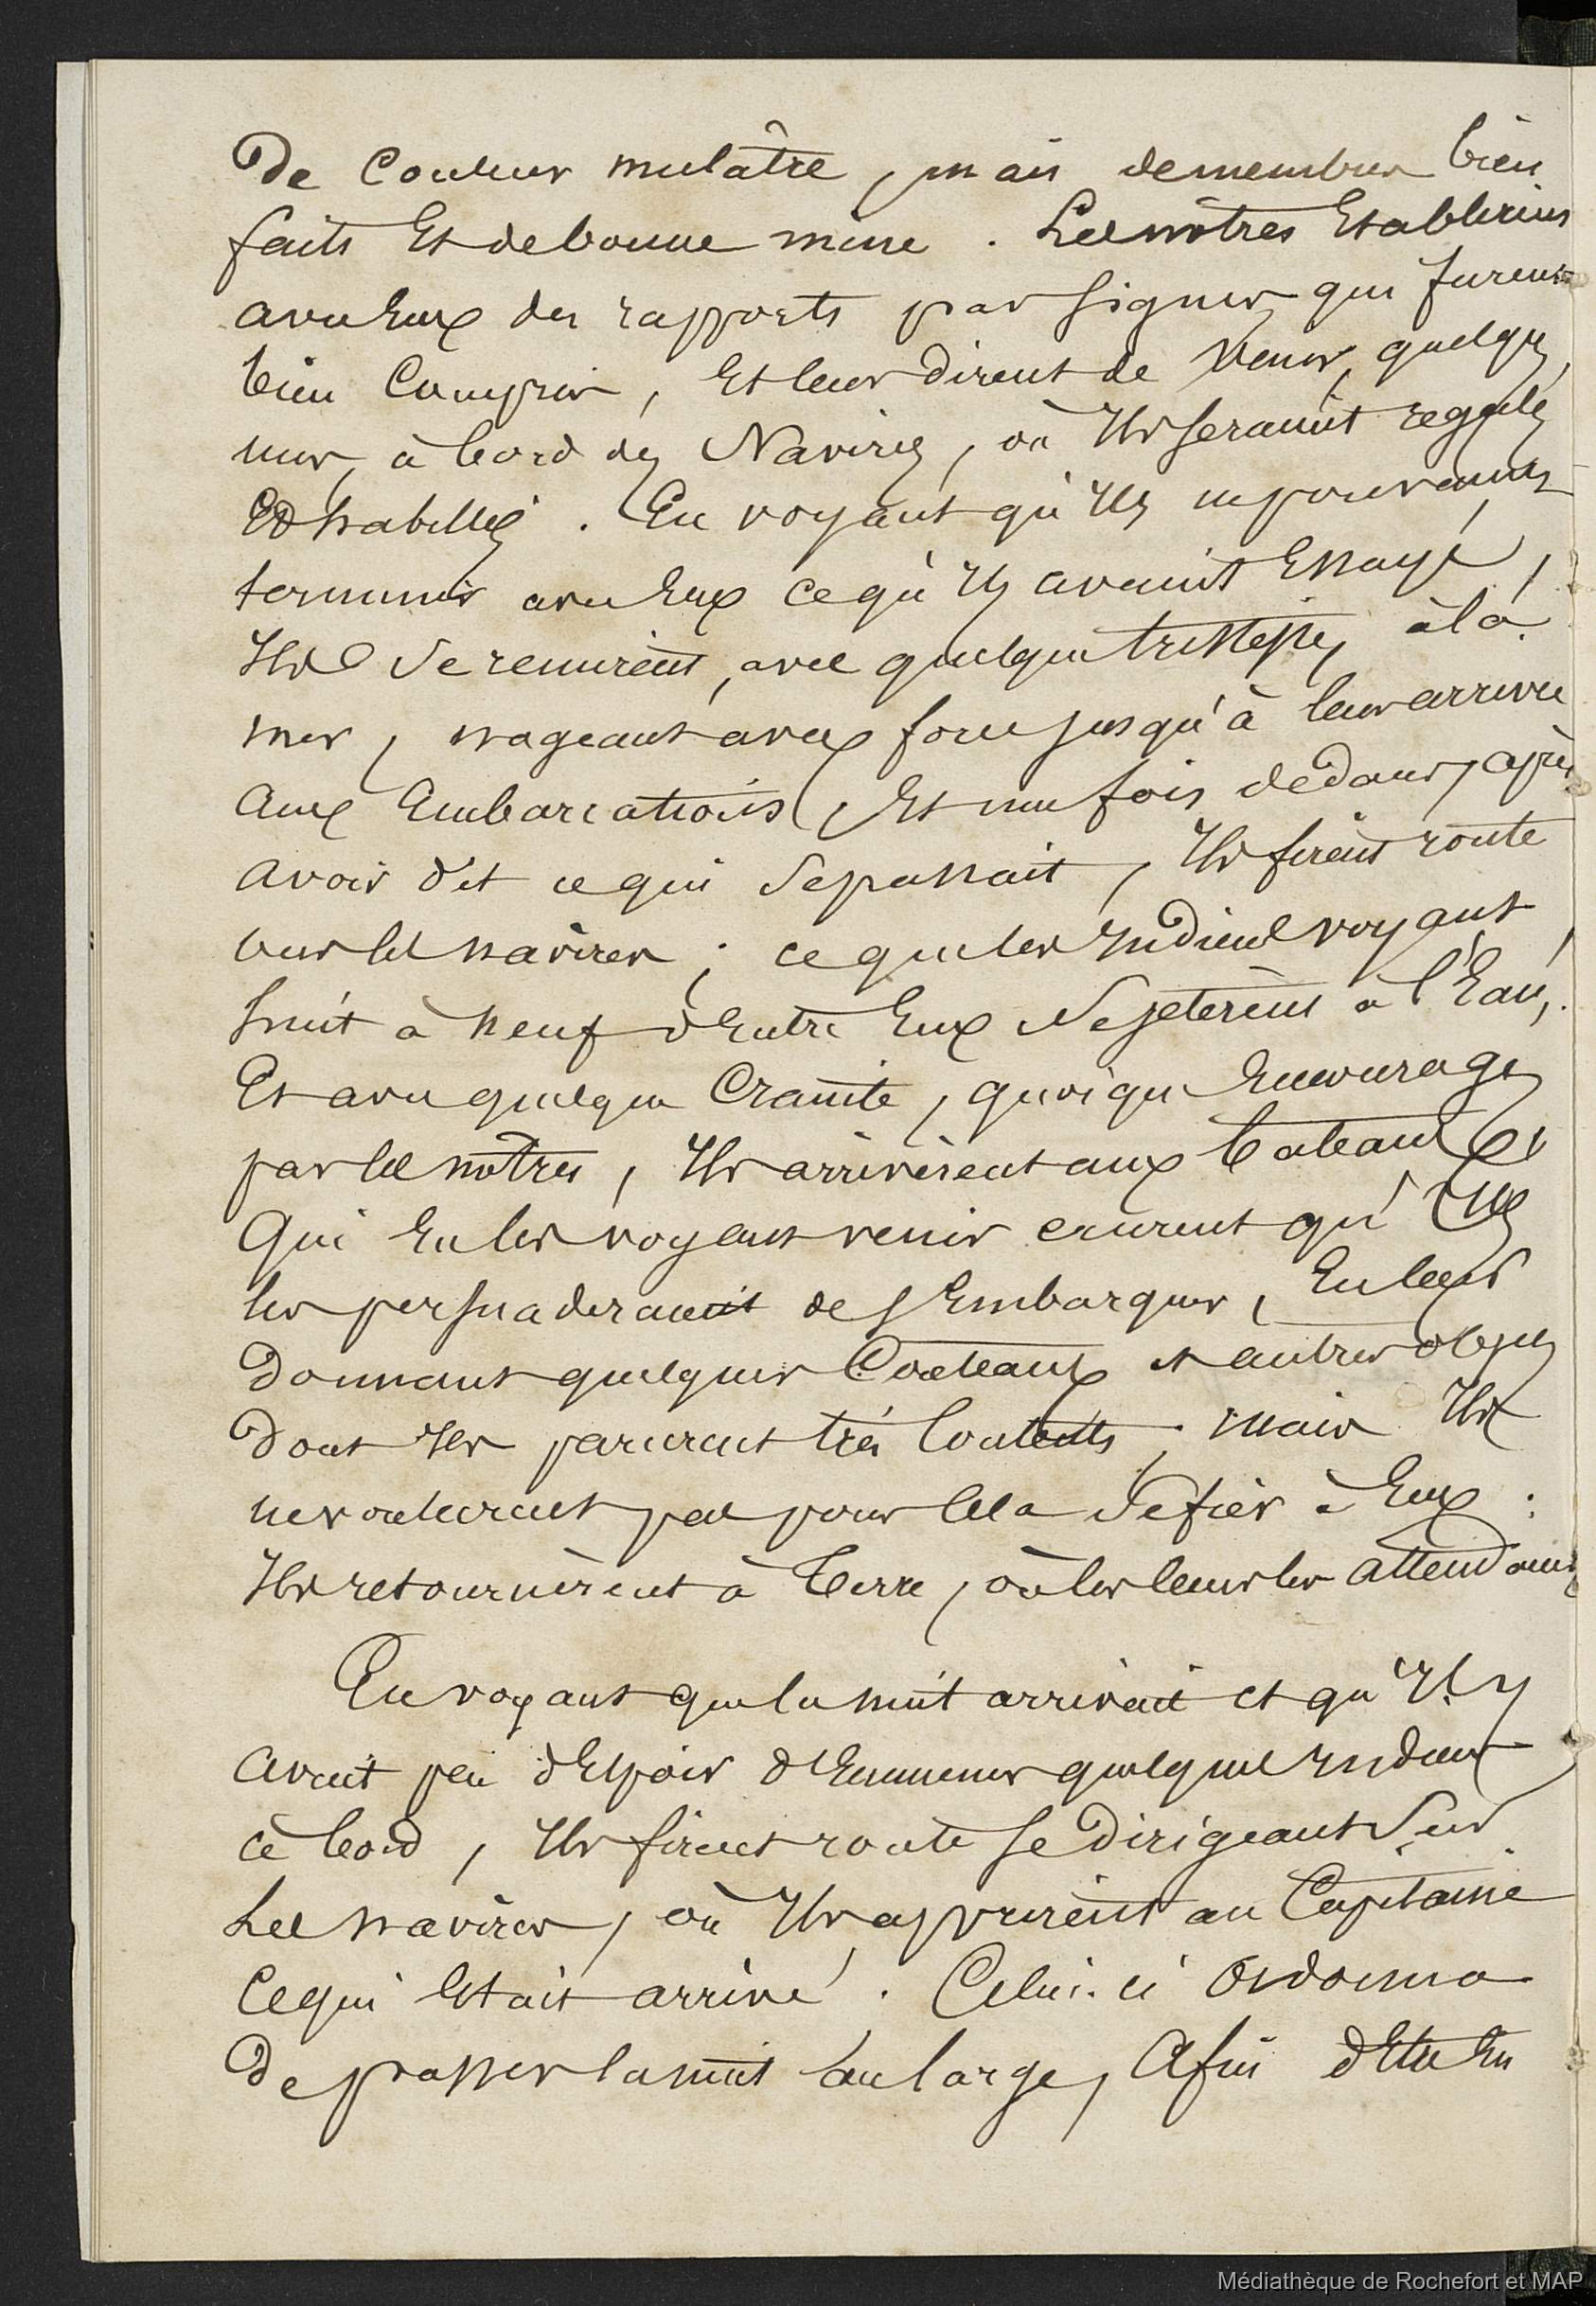 De Couleur mulâtre, mais de membres bien
faits Et de bonne mine. Les nôtres Etablirent
avec Eux des rapports par signes, qui furent
bien Compris, Et leur dirent de Venir, quelques
uns, à bord des Navires, où Ils seraient regalés
Et habillés. En voyant qu'ils ne pouvaient
terminer avec Eux ce qu'ils avaient Essayé,
Ils se remirent, avec quelque tristesse, à la
mer, nageant avec force jusqu'à leur arrivée
aux Embarcations, Et une fois dedans, après
avoir dit ce qui se passait, Ils firent route
vers les navires ; ce que les Indiens voyant
huit à neuf d'Entre Eux se jeterent à l'Eau,
Et avec quelque Crainte, quoique Encouragés
par les nôtres, Ils arrivèrent aux bateaux
Qui En les voyant venir crurent qu'Ils
les persuaderaient de s'Embarquer, En leur
Donnant quelques Couteaux et autres objets
Dont Ils parurent très Contents ; mais Ils
ne voulurent pas pour cela se fier à Eux :
Ils retournèrent à terre, où les leurs les attendaient
En voyant que la nuit arrivait et qu'Il y
avait peu d'Espoir d'Emmener quelques Indiens
à bord, Ils firent route se Dirigeant sur
Les navires, où Ils apprirent au Capitaine
Ce qui Etait arrivé. Celui-ci Ordonna
De passer la nuit au large, Afin d'Etre En
Médiathèque de Rochefort et MAP